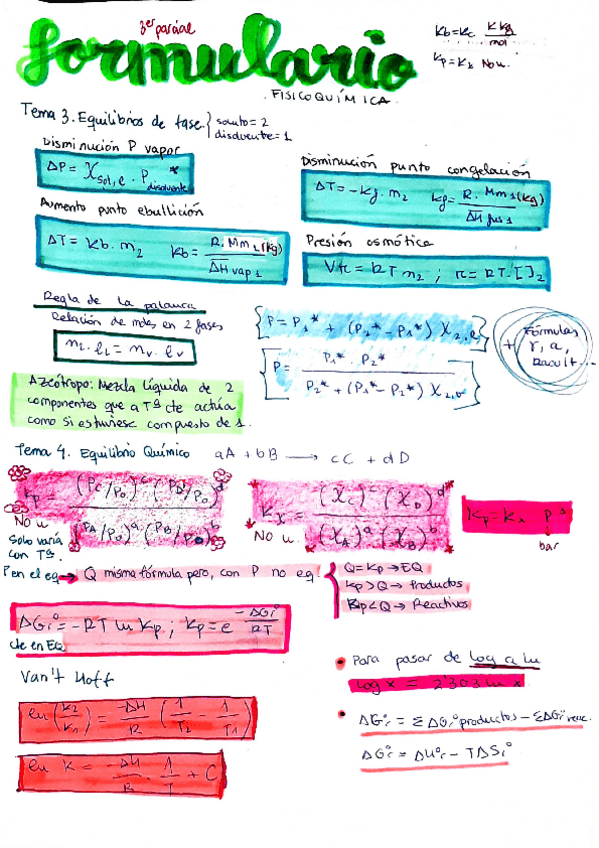 3er parcial
formulario
FISICOQUÍMICA.
Kb=Kc K Kg/mol
Kp=Kx No u.
Tema 3. Equilibrios de fase. { soluto=2
disolvente=1
Disminución P vapor
ΔP= X sol, l · P disolvente*
Disminución punto congelación
ΔT=-Kf. m2 Kf= R. Mm1(Kg) / ΔH fus1
Aumento punto ebullición
ΔT = Kb. m2 Kb= R. Mm1(Kg) / ΔH vap1
Presión osmótica
Vπ = RT n2 ; π= RT.[ ]2
Regla de la palanca
Relación de moles en 2 fases
nL. lL = nv. lv
{ P= P1* + (P2* - P1*) X2,l }
{ P= P1* . P2* / P2* + (P1* - P2*) X2,v }
+ Fórmulas
γ, a,
Raoult...
Azeótropo: Mezcla líquida de 2
componentes que a Tª cte actúa
como si estuviese compuesto de 1.
Tema 4. Equilibrio Químico aA + bB ⟶ cC + dD
Kp = (Pc/P0)^c (PD/P0)^d / (PA/P0)^a (PB/P0)^b
No u.
Solo varía
con Tª
Kx = (XC)^c (XD)^d / (XA)^a (XB)^b
No u.
Kp=Kx P
bar
P en el eq → Q misma fórmula pero, con P no eq.
{ Q=Kp → EQ
Kp>Q → Productos
Kp<Q → Reactivos
ΔGr° = -RT ln Kp ; Kp= e -ΔGr°/RT
de en EQ
Van't Hoff
ln (K2/K1) = -ΔH/R (1/T2 - 1/T1)
ln K = -ΔH/R . 1/T + C
• Para pasar de log a ln
log x = 2'303 ln x
• ΔGr° = Σ ΔG°productos - ΣΔG°reac.
ΔGr° = ΔHr° - TΔSr°